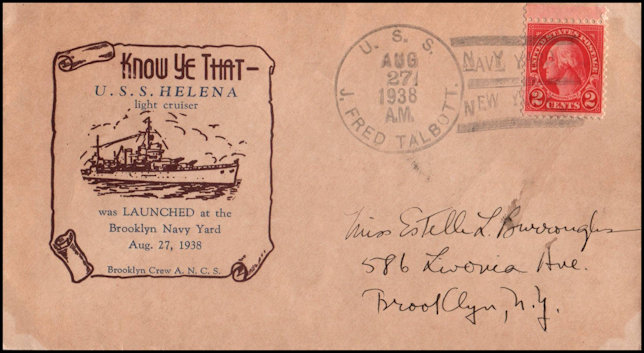 Know Ye That—
U. S. S. HELENA
light cruiser
was LAUNCHED at the
Brooklyn Navy Yard
Aug. 27, 1938
Brooklyn Crew A. N. C. S.
U. S. S.
AUG
27
1938
A.M.
J. FRED TALBOTT.
NAVY Y
NEW Y
UNITED STATES POSTAGE
2 CENTS 2
Miss Estelle L. Burroughs
586 Livonia Ave.
Brooklyn, N.Y.